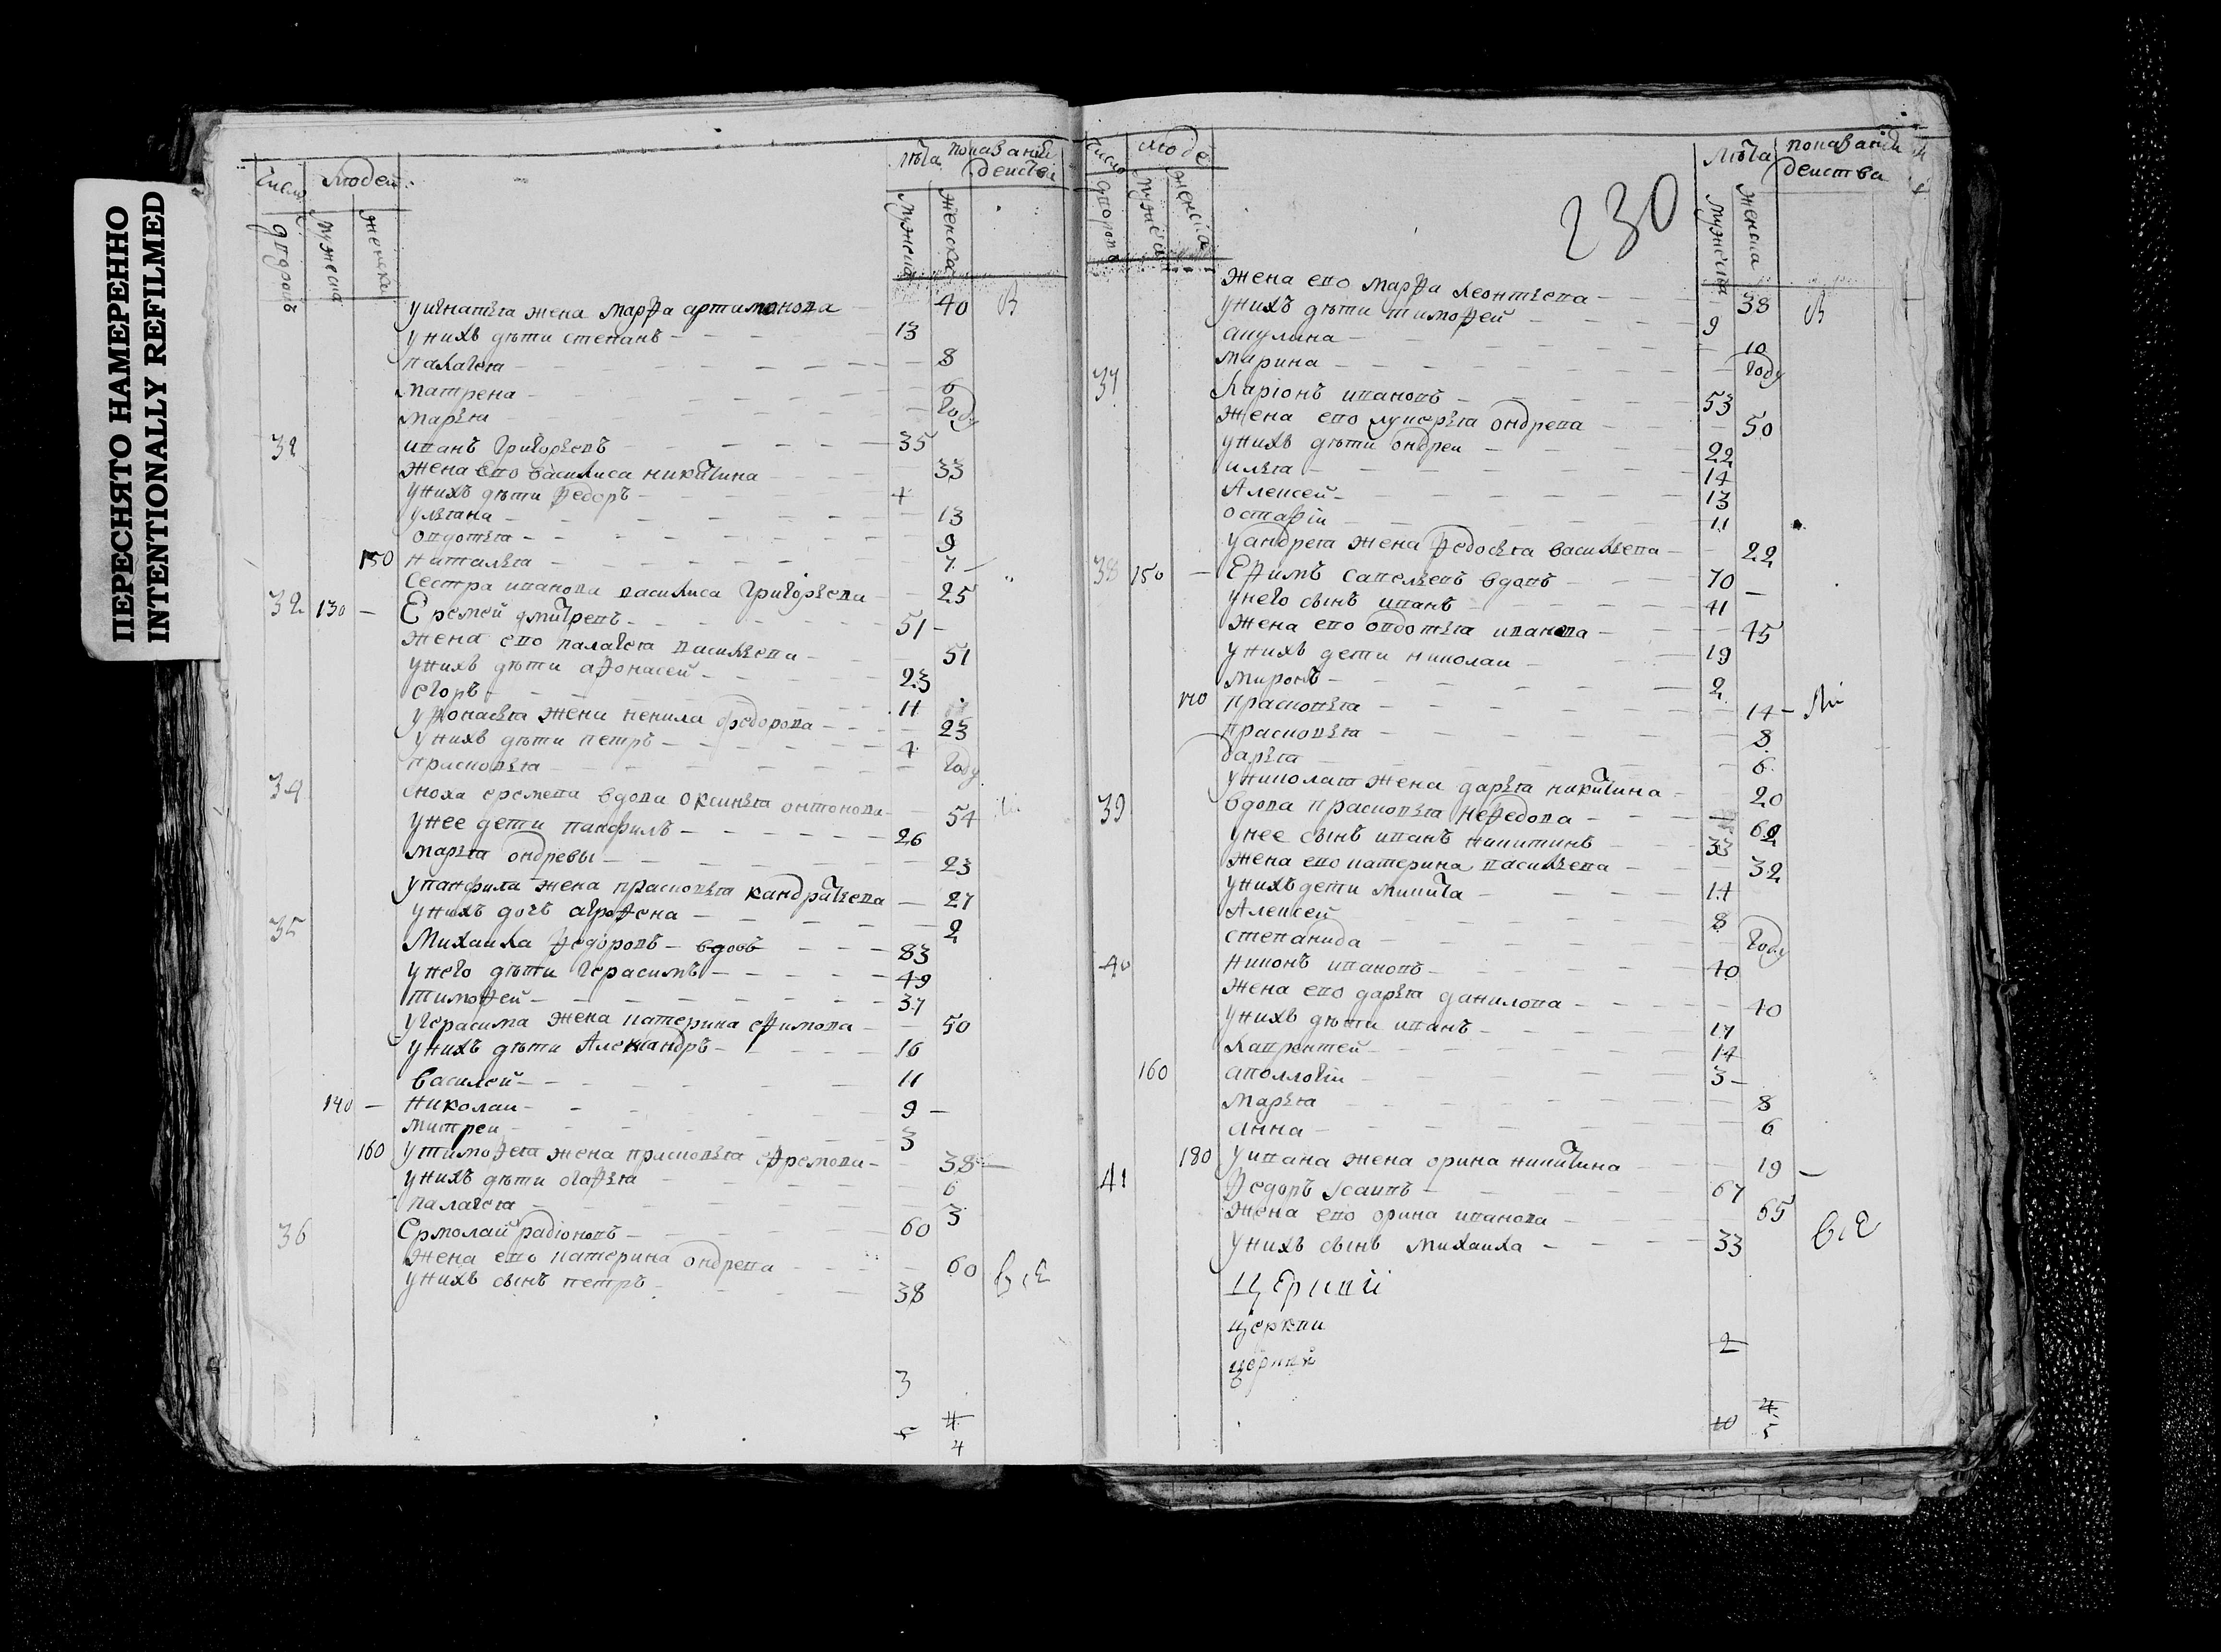 ПЕРЕСНЯТО НАМЕРЕННО
INTENTIONALLY REFILMED
Число Людей Лѣта показаніи действи
дворовъ мужеска женска мужеска женска
жена марфа артимонова 40 В
у нихъ дѣти степанъ 13
палагея 8
матрена 6
марья году
32 иванъ григорьевъ 35
жена ево василиса никитина 33
у нихъ дѣти федоръ
ульяна 13
овдотья 9
150 наталья 7
сестра иванова василиса григорьева 25
32 130 Еремей дмитревъ 51
жена ево палагея васильева 51
у нихъ дѣти афонасей 23
егоръ 11
у фонасья жена ненила федорова 23
у нихъ дѣти петръ 4
прасковья году
34 сноха еремева вдова оксинья онтонова 54
у нее дети панфилъ 26
марья ондревы 23
у панфила жена прасковья кандратьева 27
у нихъ дочь агрофена 2
35 Михайла федоровъ вдовъ 83
у него дѣти герасимъ 49
тимофей 37
у герасима жена катерина ефимова 50
у нихъ дѣти Александръ 16
василей 11
140 николаи 9
митреи 3
160 у тимофея жена прасковья ефремова 38
у нихъ дѣти агафья 6
палагея 3
36 Ермолай радіоновъ 60
жена ево катерина ондрева 60 все
у нихъ сынъ петръ 38
3
4
4
Число люде Лѣта показаніи действа
дворовъ мужеска женска мужеска женска
230
жена ево марфа леонтьева 38 В
у нихъ дѣти тимофей 9
акулина 10
марина году
37 Ларіонъ ивановъ 53
жена ево лукерья ондрева 50
у нихъ дѣти ондреи 22
илья 14
Алексей 13
остафіи 11
у андрея жена федосья васильева 22
38 150 Ефимъ савельевъ вдовъ 70
у него сынъ иванъ 41
жена ево овдотья иванова 45
у нихъ дети николаи 19
миронъ 2
170 прасковья 14
прасковья 8
дарья 6
у николая жена дарья никитина 20
39 вдова прасковья нефедова 62
у нее сынъ иванъ никитинъ 33
жена ево катерина васильева 32
у нихъ дети микита 14
Алексей 8
степанида году
40 никонъ ивановъ 40
жена ево дарья данилова 40
у нихъ дѣти иванъ 17
Лаврентей 14
160 аполлогіи 3
марья 8
анна 6
180 у ивана жена орина никитина 19
41 Федоръ 67
жена ево орина иванова 65
у нихъ сынъ михаила 33 все
церквй
церкви
2
церквй
10 4
5